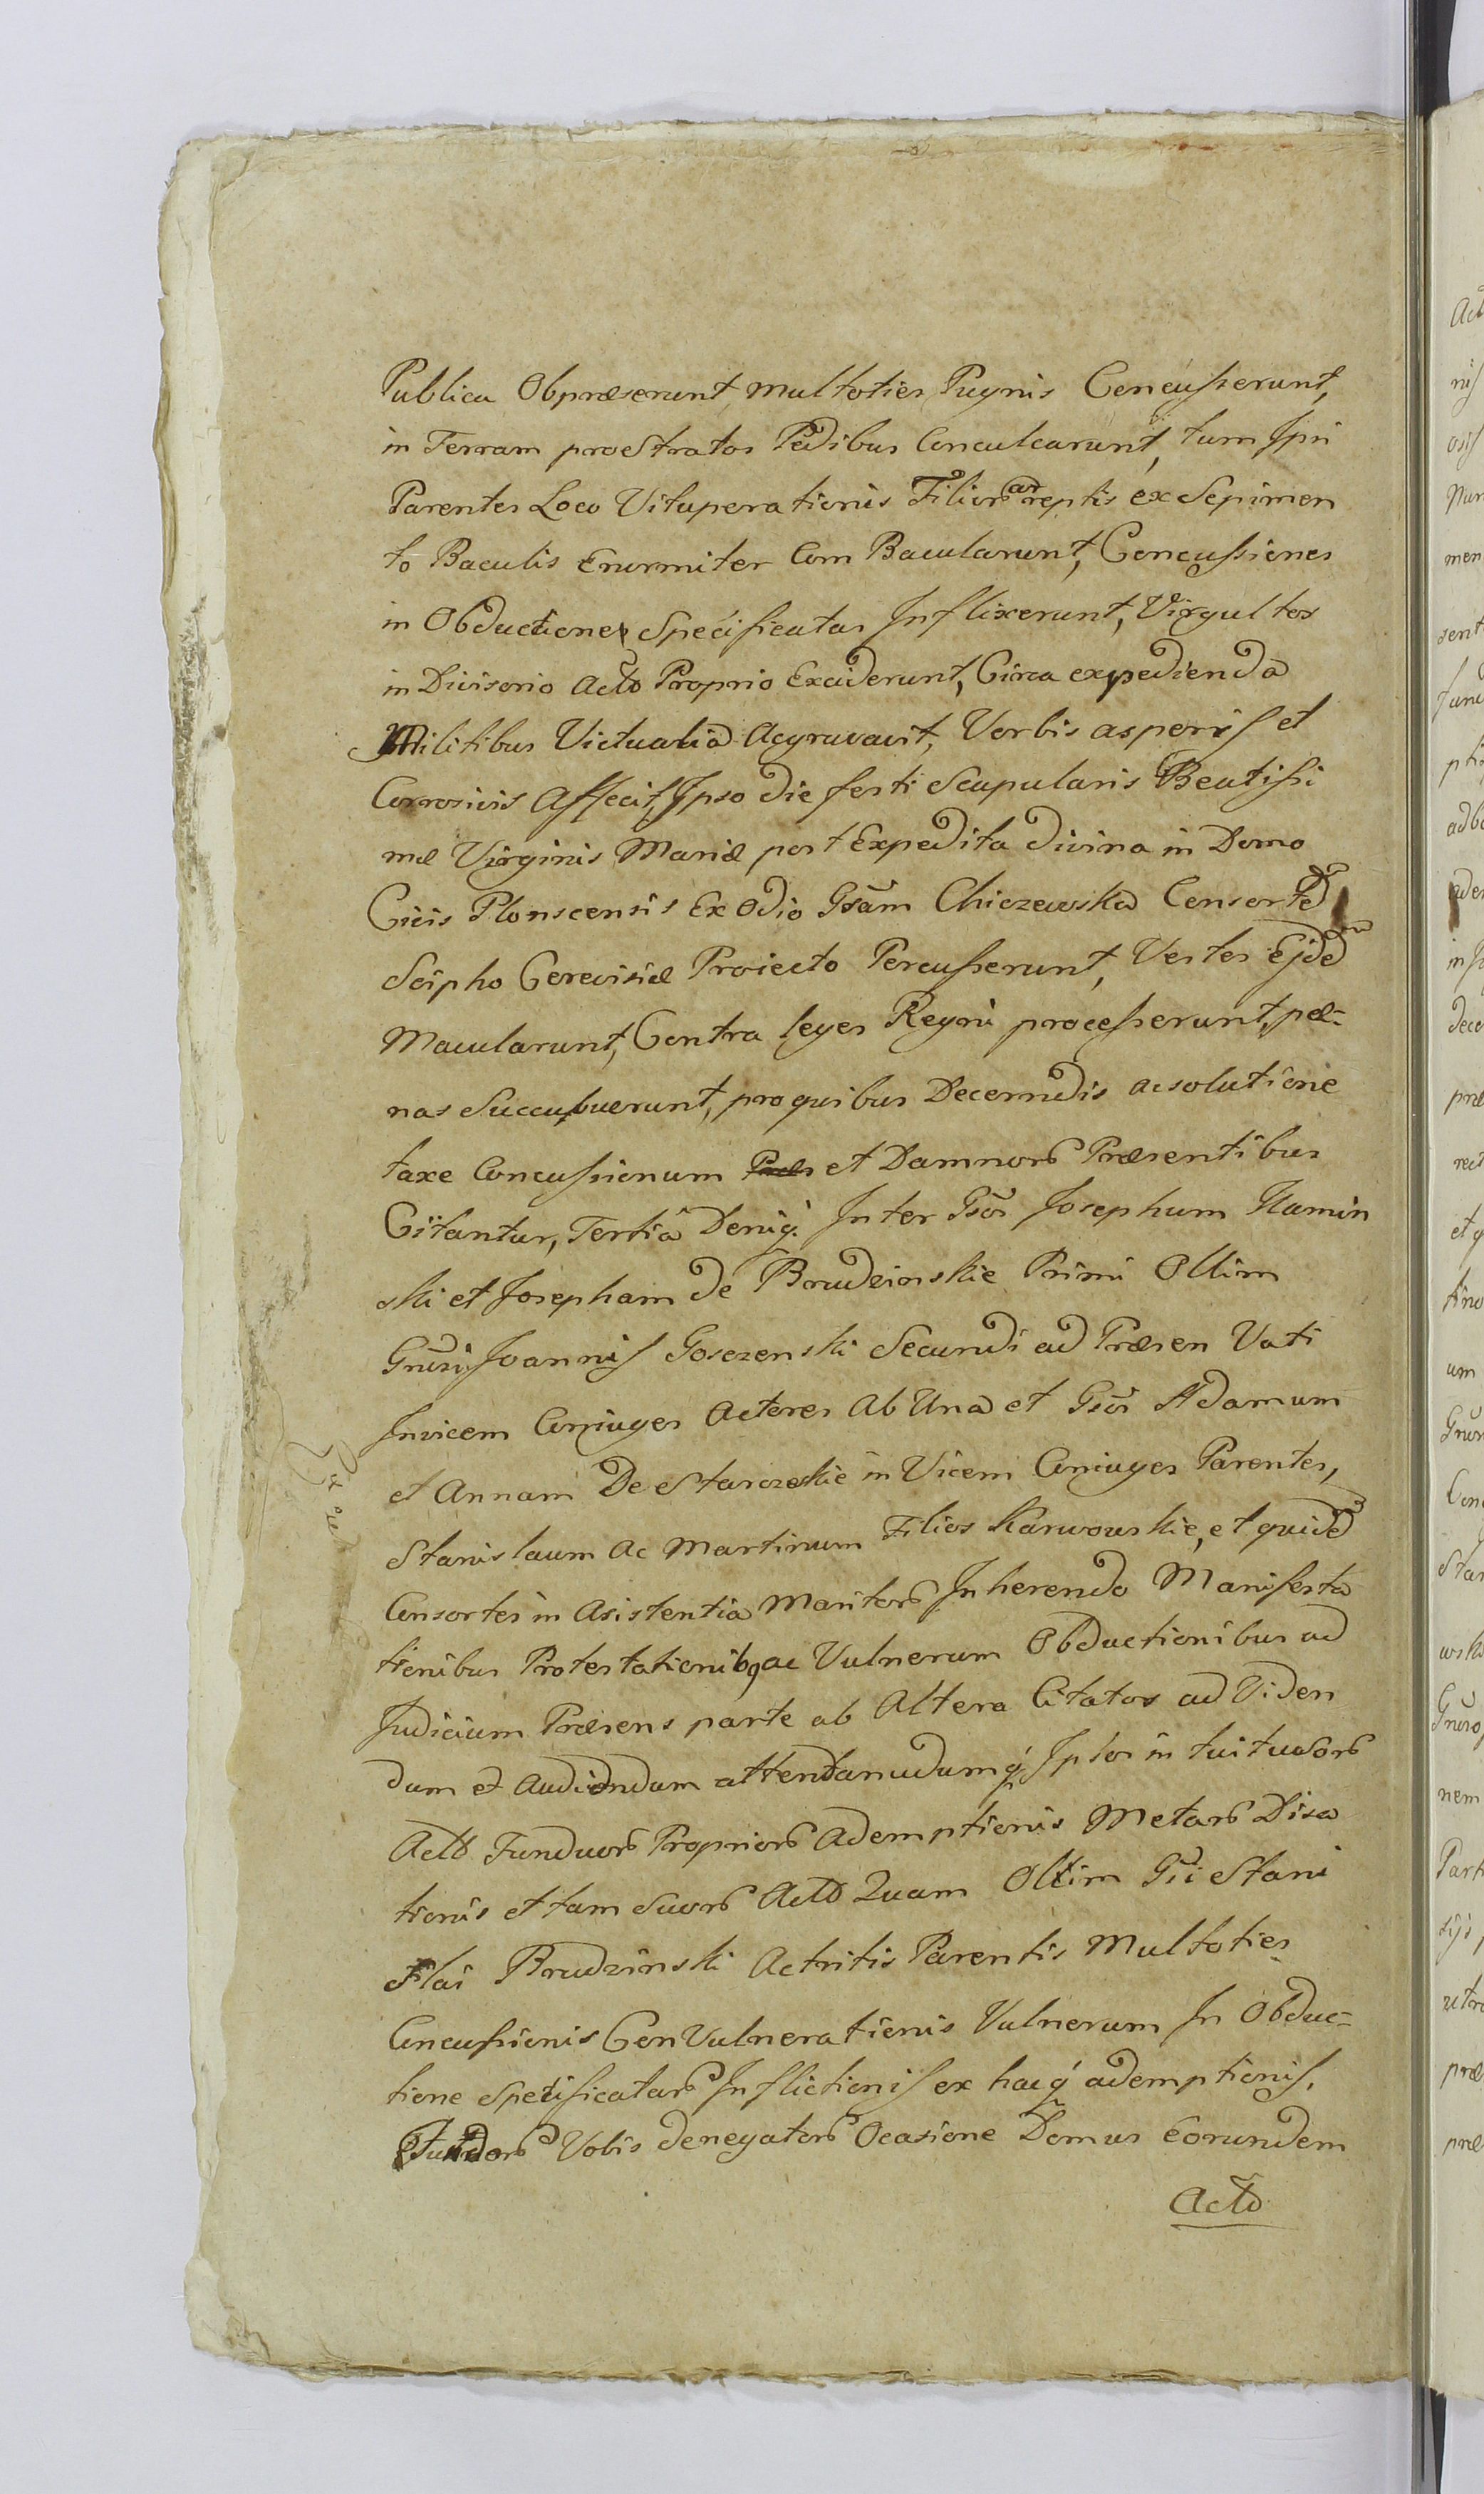 Publica Obpræserunt, multoties Pugnis Concusserunt,
in Terram prostratos Pedibus Conculcarunt, tum Ipsi
Parentes Loco Vituperationis Filior arreptis ex Sepimen
to Baculis Enormiter Com Bacularunt, Concussiones
in Obductione Specificatas Inflixerunt, Virgultos
in Divisorio Acto Proprio Exciderunt, Circa expedienda
Militibus Victualia Aggravavit, Verbis asperis et
Corrosivis Affecit, Ipso die festi Scapularis Beatissi
mæ Virginis Mariæ post Expedita divina in Domo
Civis Plonscensis Ex Odio Gsam Chiczewska Consorte
Scipho Cerevisiæ Proiecto Percusserunt, Vestes Ejd
Macularunt, Contra leges Regni processerunt, pæ-
nas Succubuerunt, pro quibus Decernudis ac solutione
taxe Concussionum et Damnor Præsentibus
Citantur, Tertia Deniq Inter Gsos Josephum Kamin
ski et Josepham de Brudzinskie Primi Ollim
Gnusi Joannis Gosczenski Secundi ad Præsen Voti
Invicem Coniuges Actores Ab Una et Gsos Adamum
et Annam De Starczeskie in Vicem Coniuges Parentes,
Stanislaum Ac Martinum Filios Karwowskie, et quide
Consortes in Asistentia Maritor Inherendo Manifesta
tionibus Protestationibq ac Vulnerum Obductionibus ad
Judicium Præsens parte ab Altera Citatos ad Viden
dum et Audiendum attentandumq Iptos in tuituosor
Acto Funduor Proprior Ademptionis Metar Disa
tionis et tam Suor Acto Quam Ollim Gsi Stani
slai Brudzinski Actritis Parentis Multoties
Concussionis Con Vulnerationis Vulnerum In Obduc-
tione Specificatar Inflictionis ex hacq ademptionis,
Fundor Vobis denegator Ocasione Domus Eorundem
Acto